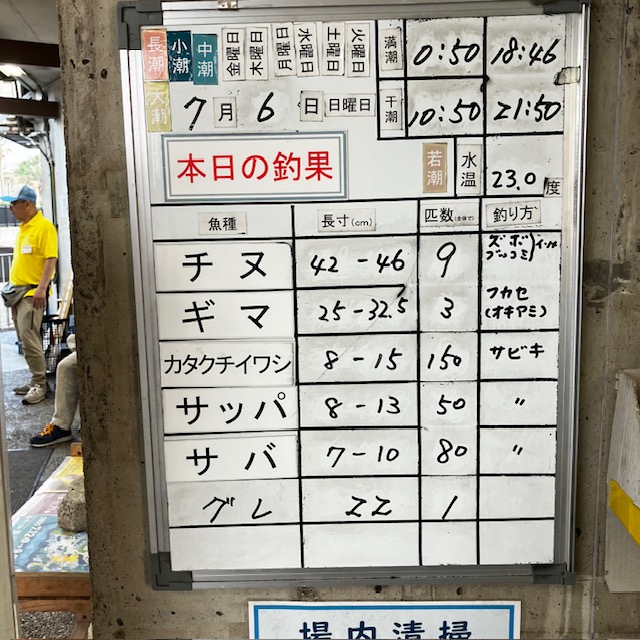 長潮 小潮 中潮 金曜日 木曜日 月曜日 水曜日 土曜日 火曜日 満潮 0:50 18:46
大潮 7月6日 日曜日 干潮 10:50 21:50
本日の釣果 若潮 水温 23.0度
魚種 長寸(cm) 匹数(全体で) 釣り方
チヌ 42-46 9 ズボ ブッコミ
ギマ 25-32.5 3 フカセ(オキアミ)
カタクチイワシ 8-15 150 サビキ
サッパ 8-13 50 〃
サバ 7-10 80 〃
グレ 22 1
場内清掃